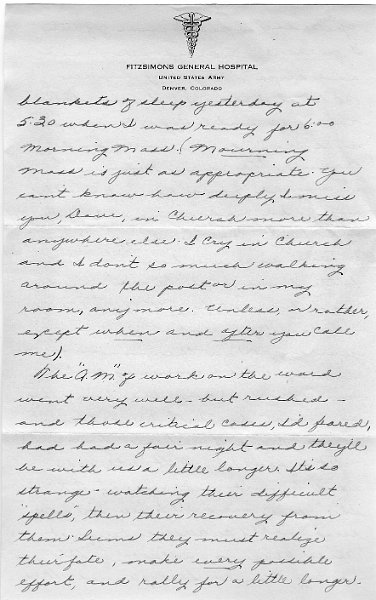 FITZSIMONS GENERAL HOSPITAL
UNITED STATES ARMY
DENVER, COLORADO
blankets of sleep yesterday at
5:20 when I was ready for 6:00
Morning Mass. (Mourning
Mass is just as appropriate. You
cant know how deeply I miss
you, Dave, in Church more than
anywhere else. I cry in Church
and I dont so much walking
around the post or in my
room, anymore. Unless, or rather,
except when and after you call
me).
The "A.M." of work on the ward
went very well - but rushed -
and those critical cases, I'd feared,
had had a fair night and they'll
be with us a little longer. It's so
strange - watching their difficult
"spells", then their recovery from
them. Seems they must realize
their fate, make every possible
effort, and rally for a little longer.